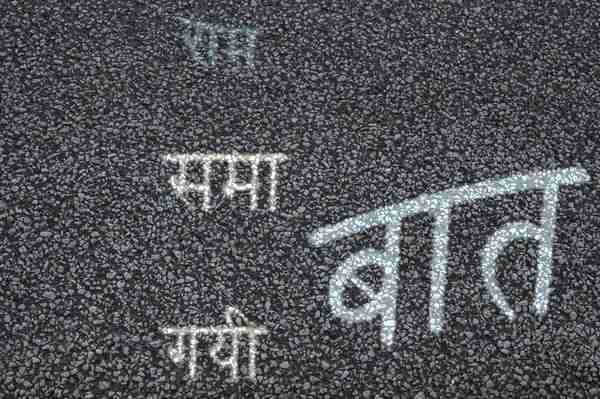 राम
समा
बात
गयी